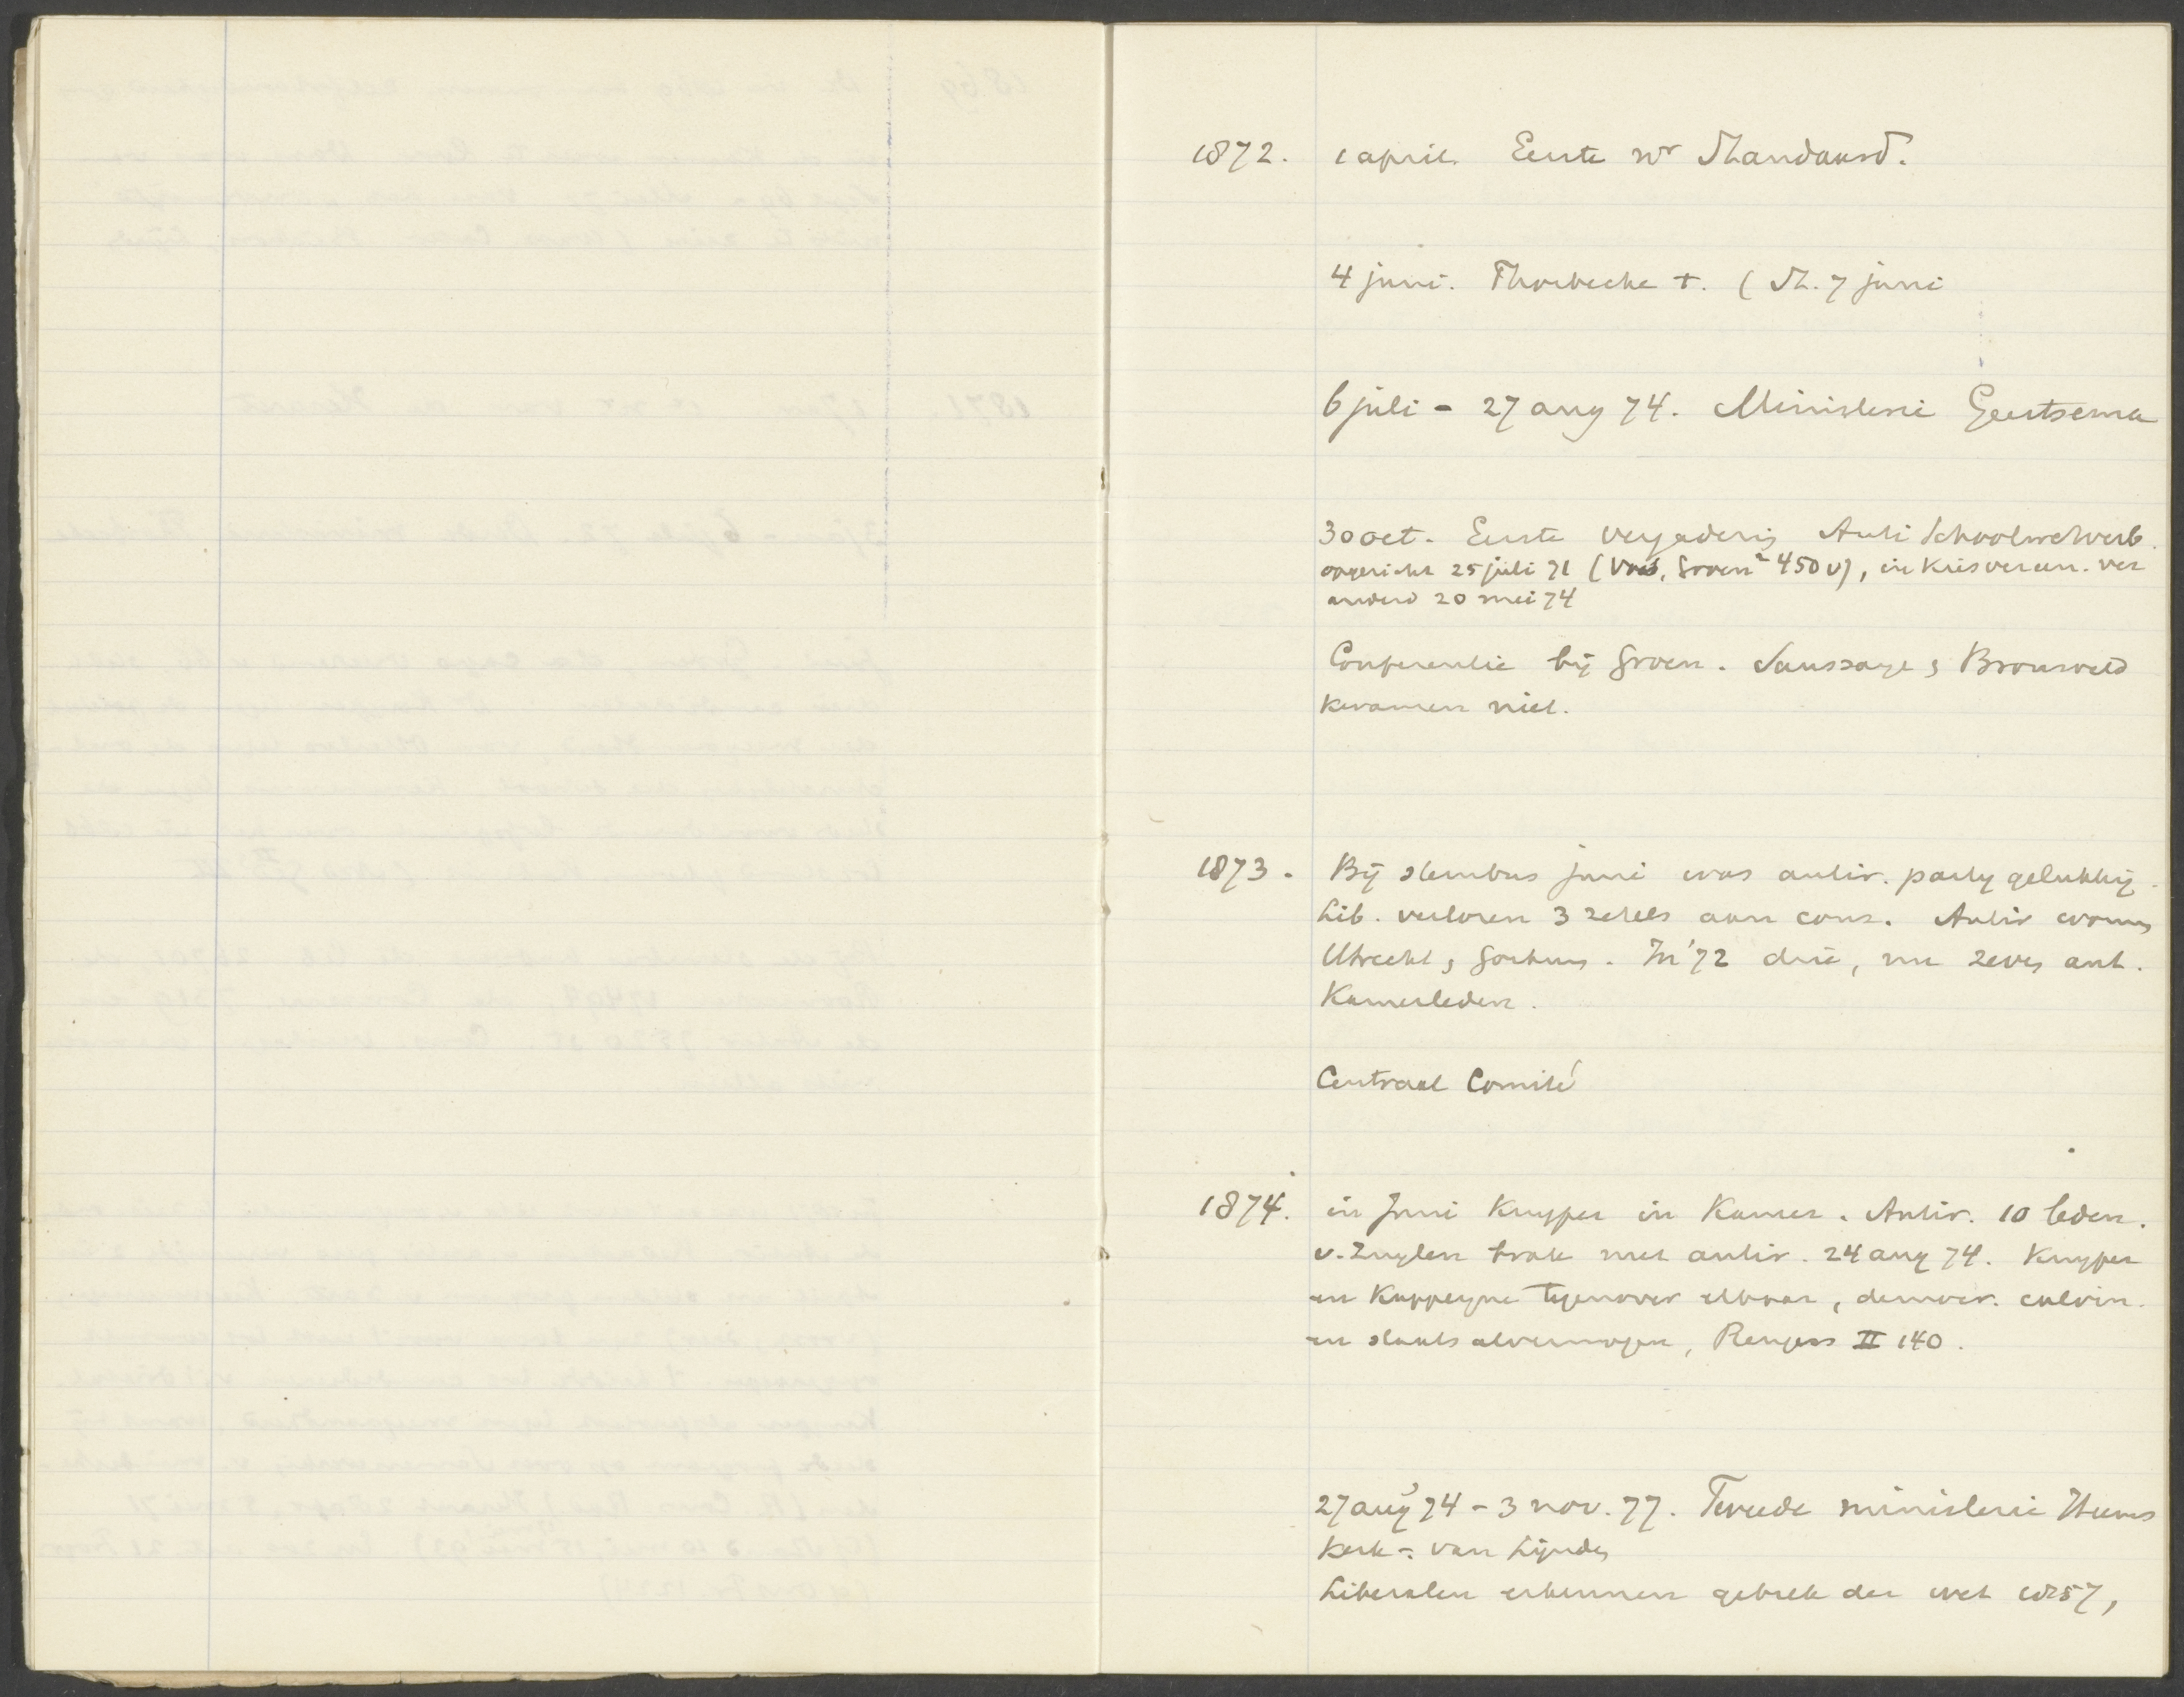 1872. 1 april. Eerste nr Standaard.
4 juni. Thorbecke †. (St. 7 juni
6 juli - 27 aug 74. Ministerie Geertsema
30 oct. Eerste vergadering Anti Schoolwetverb.
opgericht 25 juli 71 (Vos, Groen² 450 v), in Kiesvereen. ver
anderd 20 mei 74
Conferentie bij Groen. Saussaye & Bronsveld
kwamen niet.
1873. Bij stembus juni was antir. party gelukkig.
Lib. verloren 3 zetels aan cons. Antir wonnen
Utrecht, Gorkum. In '72 drie, nu zeven ant.
Kamerleden.
Centraal Comité
1874. in Juni Kuyper in Kamer. Antir. 10 leden.
v. Zuylen brak met antir. 24 aug 74. Kuyper
en Kappeyne tegenover elkaar, democr. calvin.
en staatsalvermogen, Rengers II 140.
27 aug 74 - 3 nov. 77. Tweede ministerie Heems
kerk - van Lijnden
Liberalen erkennen gebrek der wet 1857,